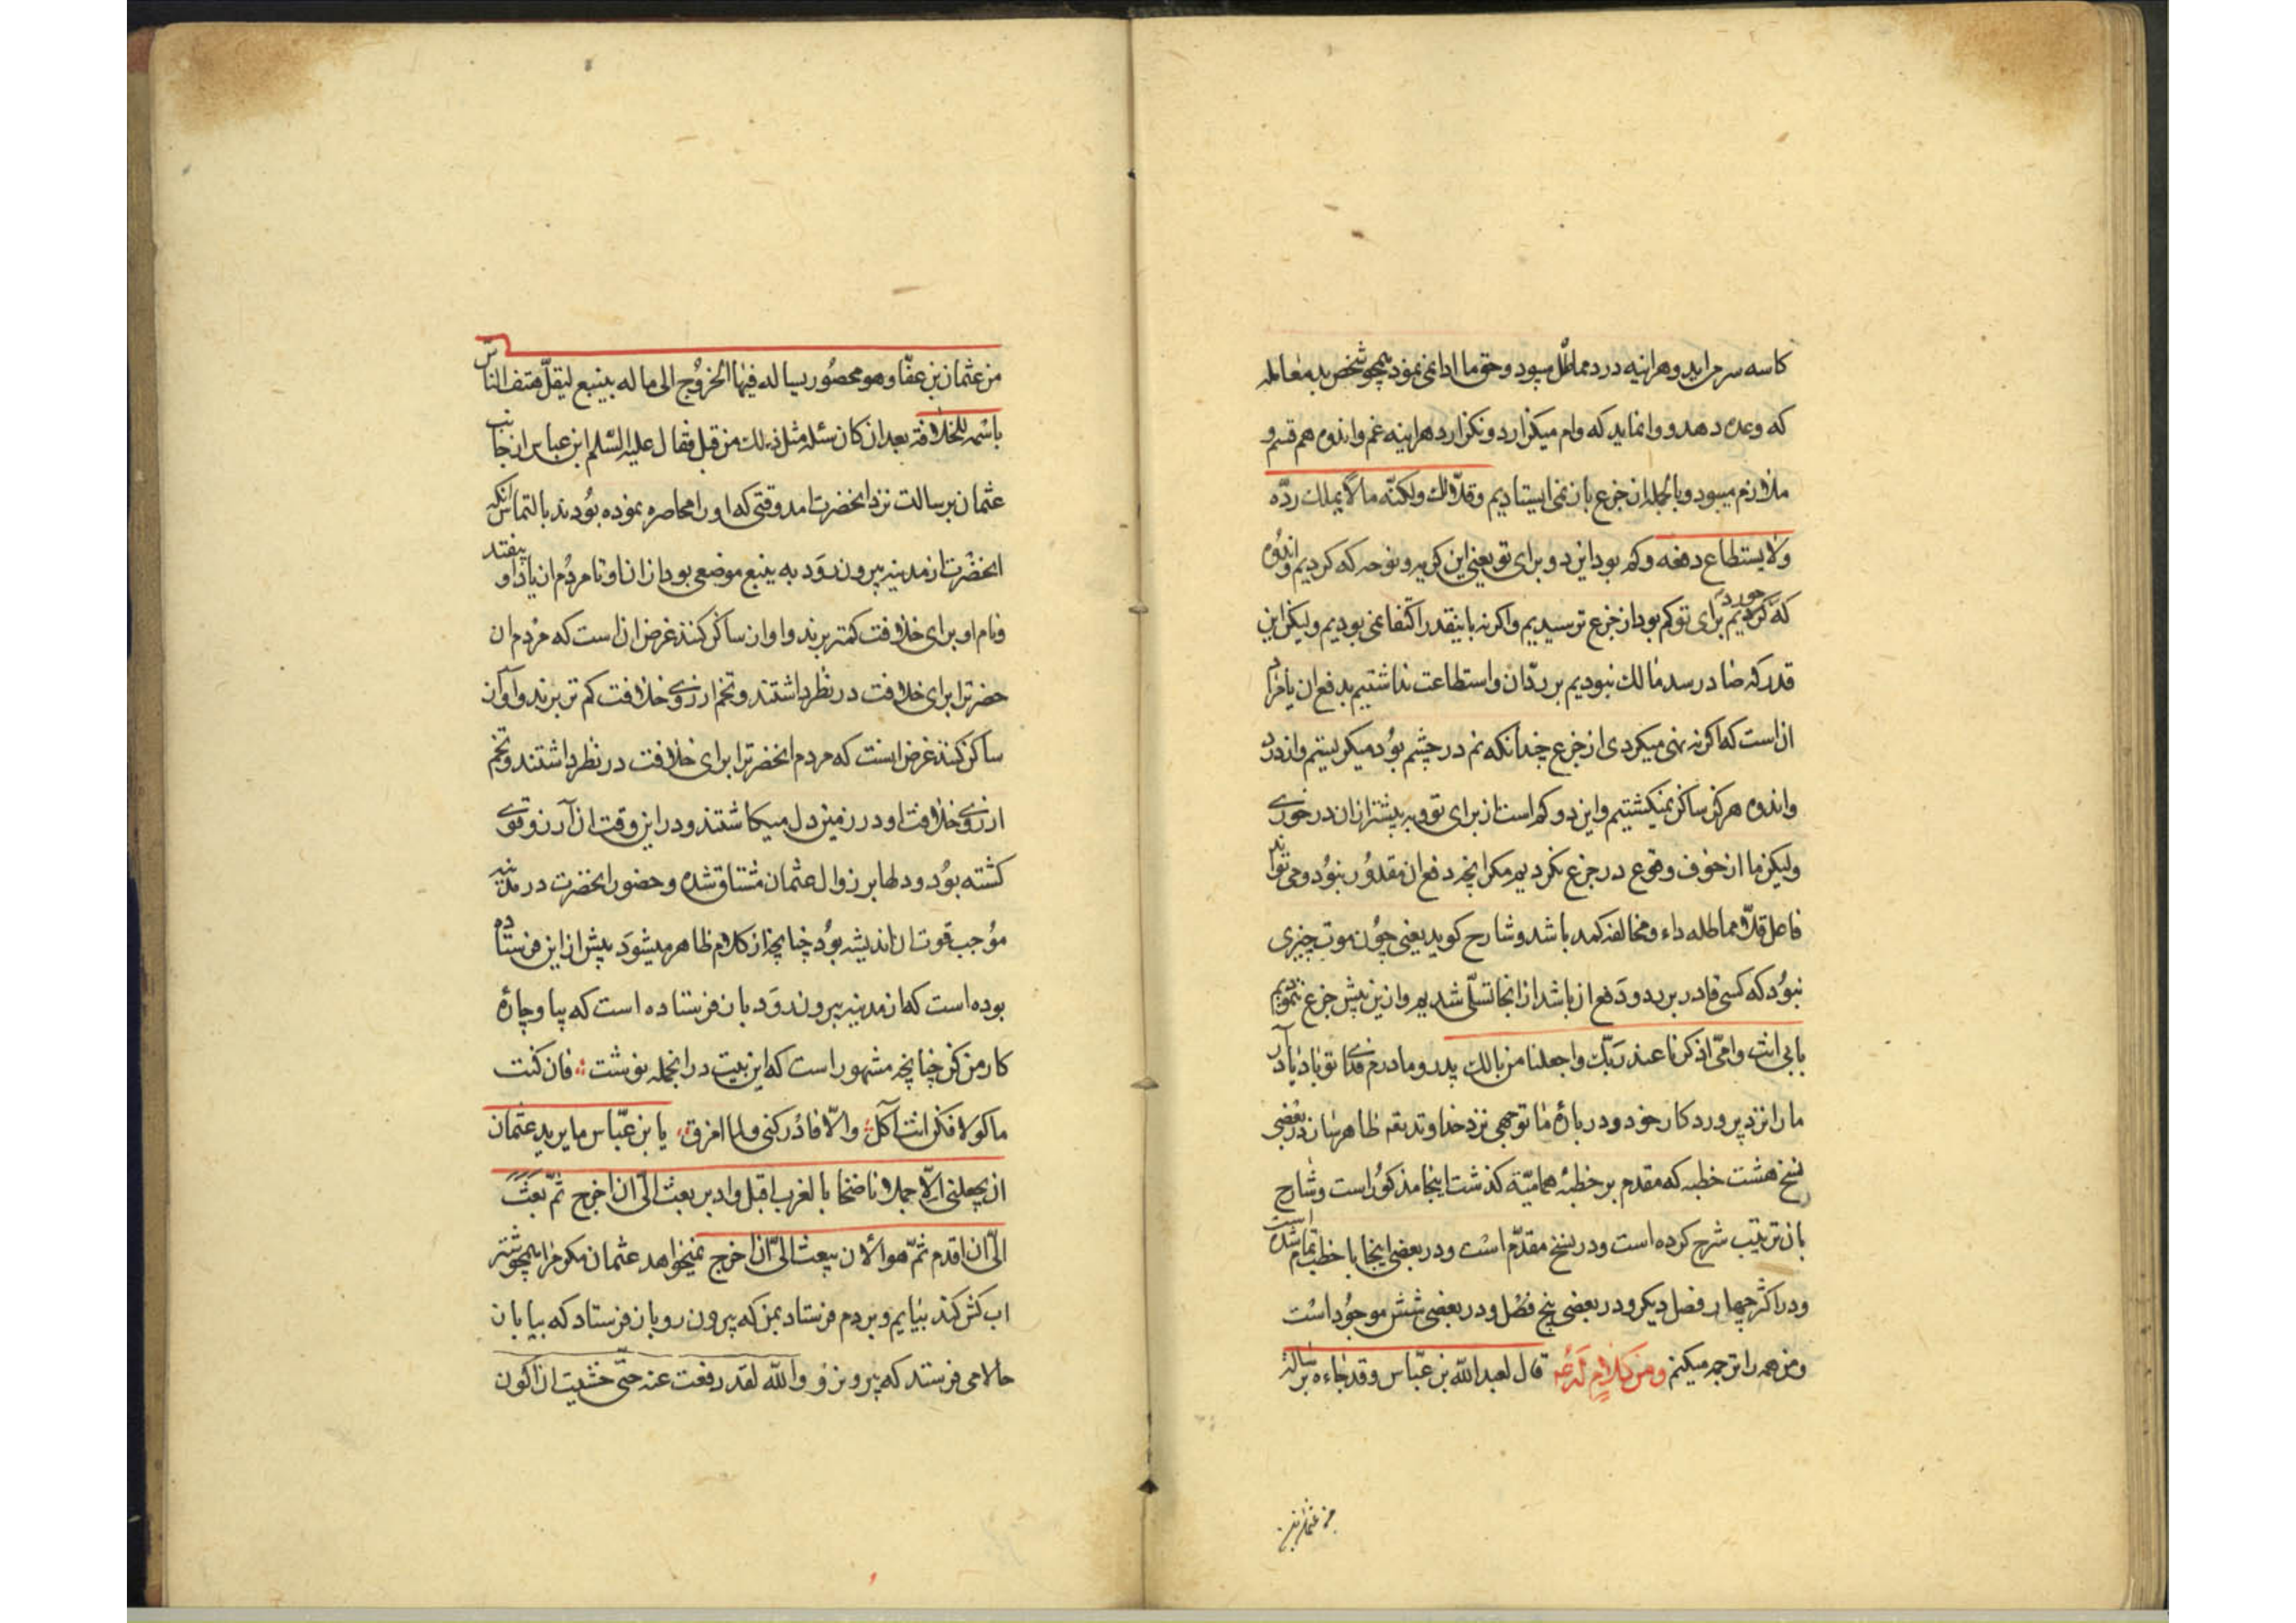 کاسه سر می اید و هراینه درد مماطل میبود و حق ما ادا نمی نمود همچو شخص بد معامله
که وعده دهد و وا نماید که وام میکزارد و نکزارد هراینه غم و اندوه هم قسم و
ملازم میبود و بالجمله از جزع بان نمی ایستادیم وقلّا لك ولکنّه ما لا یملك ردّه
ولا یستطاع دفعه و کم بود این دو برای تو یعنی این کریه و نوحه که کردیم و اندوه
که خوردیم برای تو کم بود از جزع ترسیدیم و اکر نه باینقدر اکتفا نمی بودیم ولیکن این
قدر که صادر سد مالك نبودیم بر ردّ ان و استطاعت نداشتیم بدفع ان یا مراد
ان است که اکر نه نهی میکردی از جزع چندانکه نم در چشم بود میکریستیم و از درد
و اندوه هرکز ساکن نمیکشتیم و این دو کم است از برای تو و به بیشتر از ان در خوری
ولیکن ما از خوف وقوع در جزع نکردیم مکر انچه دفع ان مقدور نبود و می تواند
فاعل قلّا مماطله داء و محالفه کمد باشد و شارح کوید یعنی چون موت چیزی
نبود که کسی قادر بر رد و دفع ان باشد از انجا تسلّی شدیم و از این بیش جزع ننمودیم
بابی انت وامّی اذکرنا عند ربّك واجعلنا من بالك پدر و مادرم فدای تو باد یاد آر
ما را نزد پروردکار خود و در بارهٔ ما توجهی نزد خدا و تدبقه ظاهرسان در بعضی
نسخ هشت خطبه که مقدم بر خطبهٔ همامیّه کذشت اینجا مذکور است و شارح
بان ترتیب شرح کرده است و در نسخ مقدّم است و در بعضی اینجا با خطب تمام شده است
و در اکثر چهار فصل دیکر و در بعضی پنج فصل و در بعضی شش موجود است
و من همه را ترجمه میکنم ومن کلام له ع قال لعبد الله بن عبّاس وقد جاءه برسالة
من عثمان بن
من عثمان بن عفّا وهو محصور یساله فیها الخروج الی ماله بینبع لیقلّ هتف الناس
باسمه للخلافة بعد ان کان سئله مثل ذلك من قبل فقال علیه السّلم ابن عباس از جانب
عثمان برسالت نزد انحضرت امد وقتی که او را محاصره نموده بودند بالتماس انکه
انحضرت از مدینه بیرون رود به ینبع موضعی بود از ان او تا مردم ان یاد او بیفتد
و نام او برای خلافت کمتر برند و اوان ساکن کنند غرض ان است که مردم ان
حضرترا برای خلافت در نظر داشتند و تخم ارزوی خلافت کم تر برند و آوان
ساکن کنند غرض اینست که مردم انحضرترا برای خلافت در نظر داشتند و تخم
ارزوی خلافت او در زمین دل میکاشتند و در این وقت ان آرزو قوی
کشته بود و دلها بر زوال عثمان مشتاق شده و حضور انحضرت در مدینه
موجب قوت ان اندیشه بود چنانچه از کلام ظاهر میشود پیش از این فرستاده
بوده است که از مدینه بیرون رود بان فرستاده است که بیا و چارهٔ
کار من کن چنانچه مشهور است که این بیت در انجمله نوشت فان کنت
ماکولا فکن انت آکل والّا فادرکنی ولما امزق یا بن عبّاس ما یرید عثمان
ان یجعلنی الّا جملا ناضحا بالغرب اقبل وادبر بعث الیّ ان اخرج ثمّ بعث
الیّ ان اقدم ثمّ هو الان یبعث الیّ ان اخرج نمیخواهد عثمان مکر مرا همچو شتر
اب کش کند بیایم و بروم فرستاد بمن که بیرون رو بان فرستاد که بیا بان
حالا می فرستد که بیرون رو والله لقد رفعت عنه حتّی خشیت ان اکون